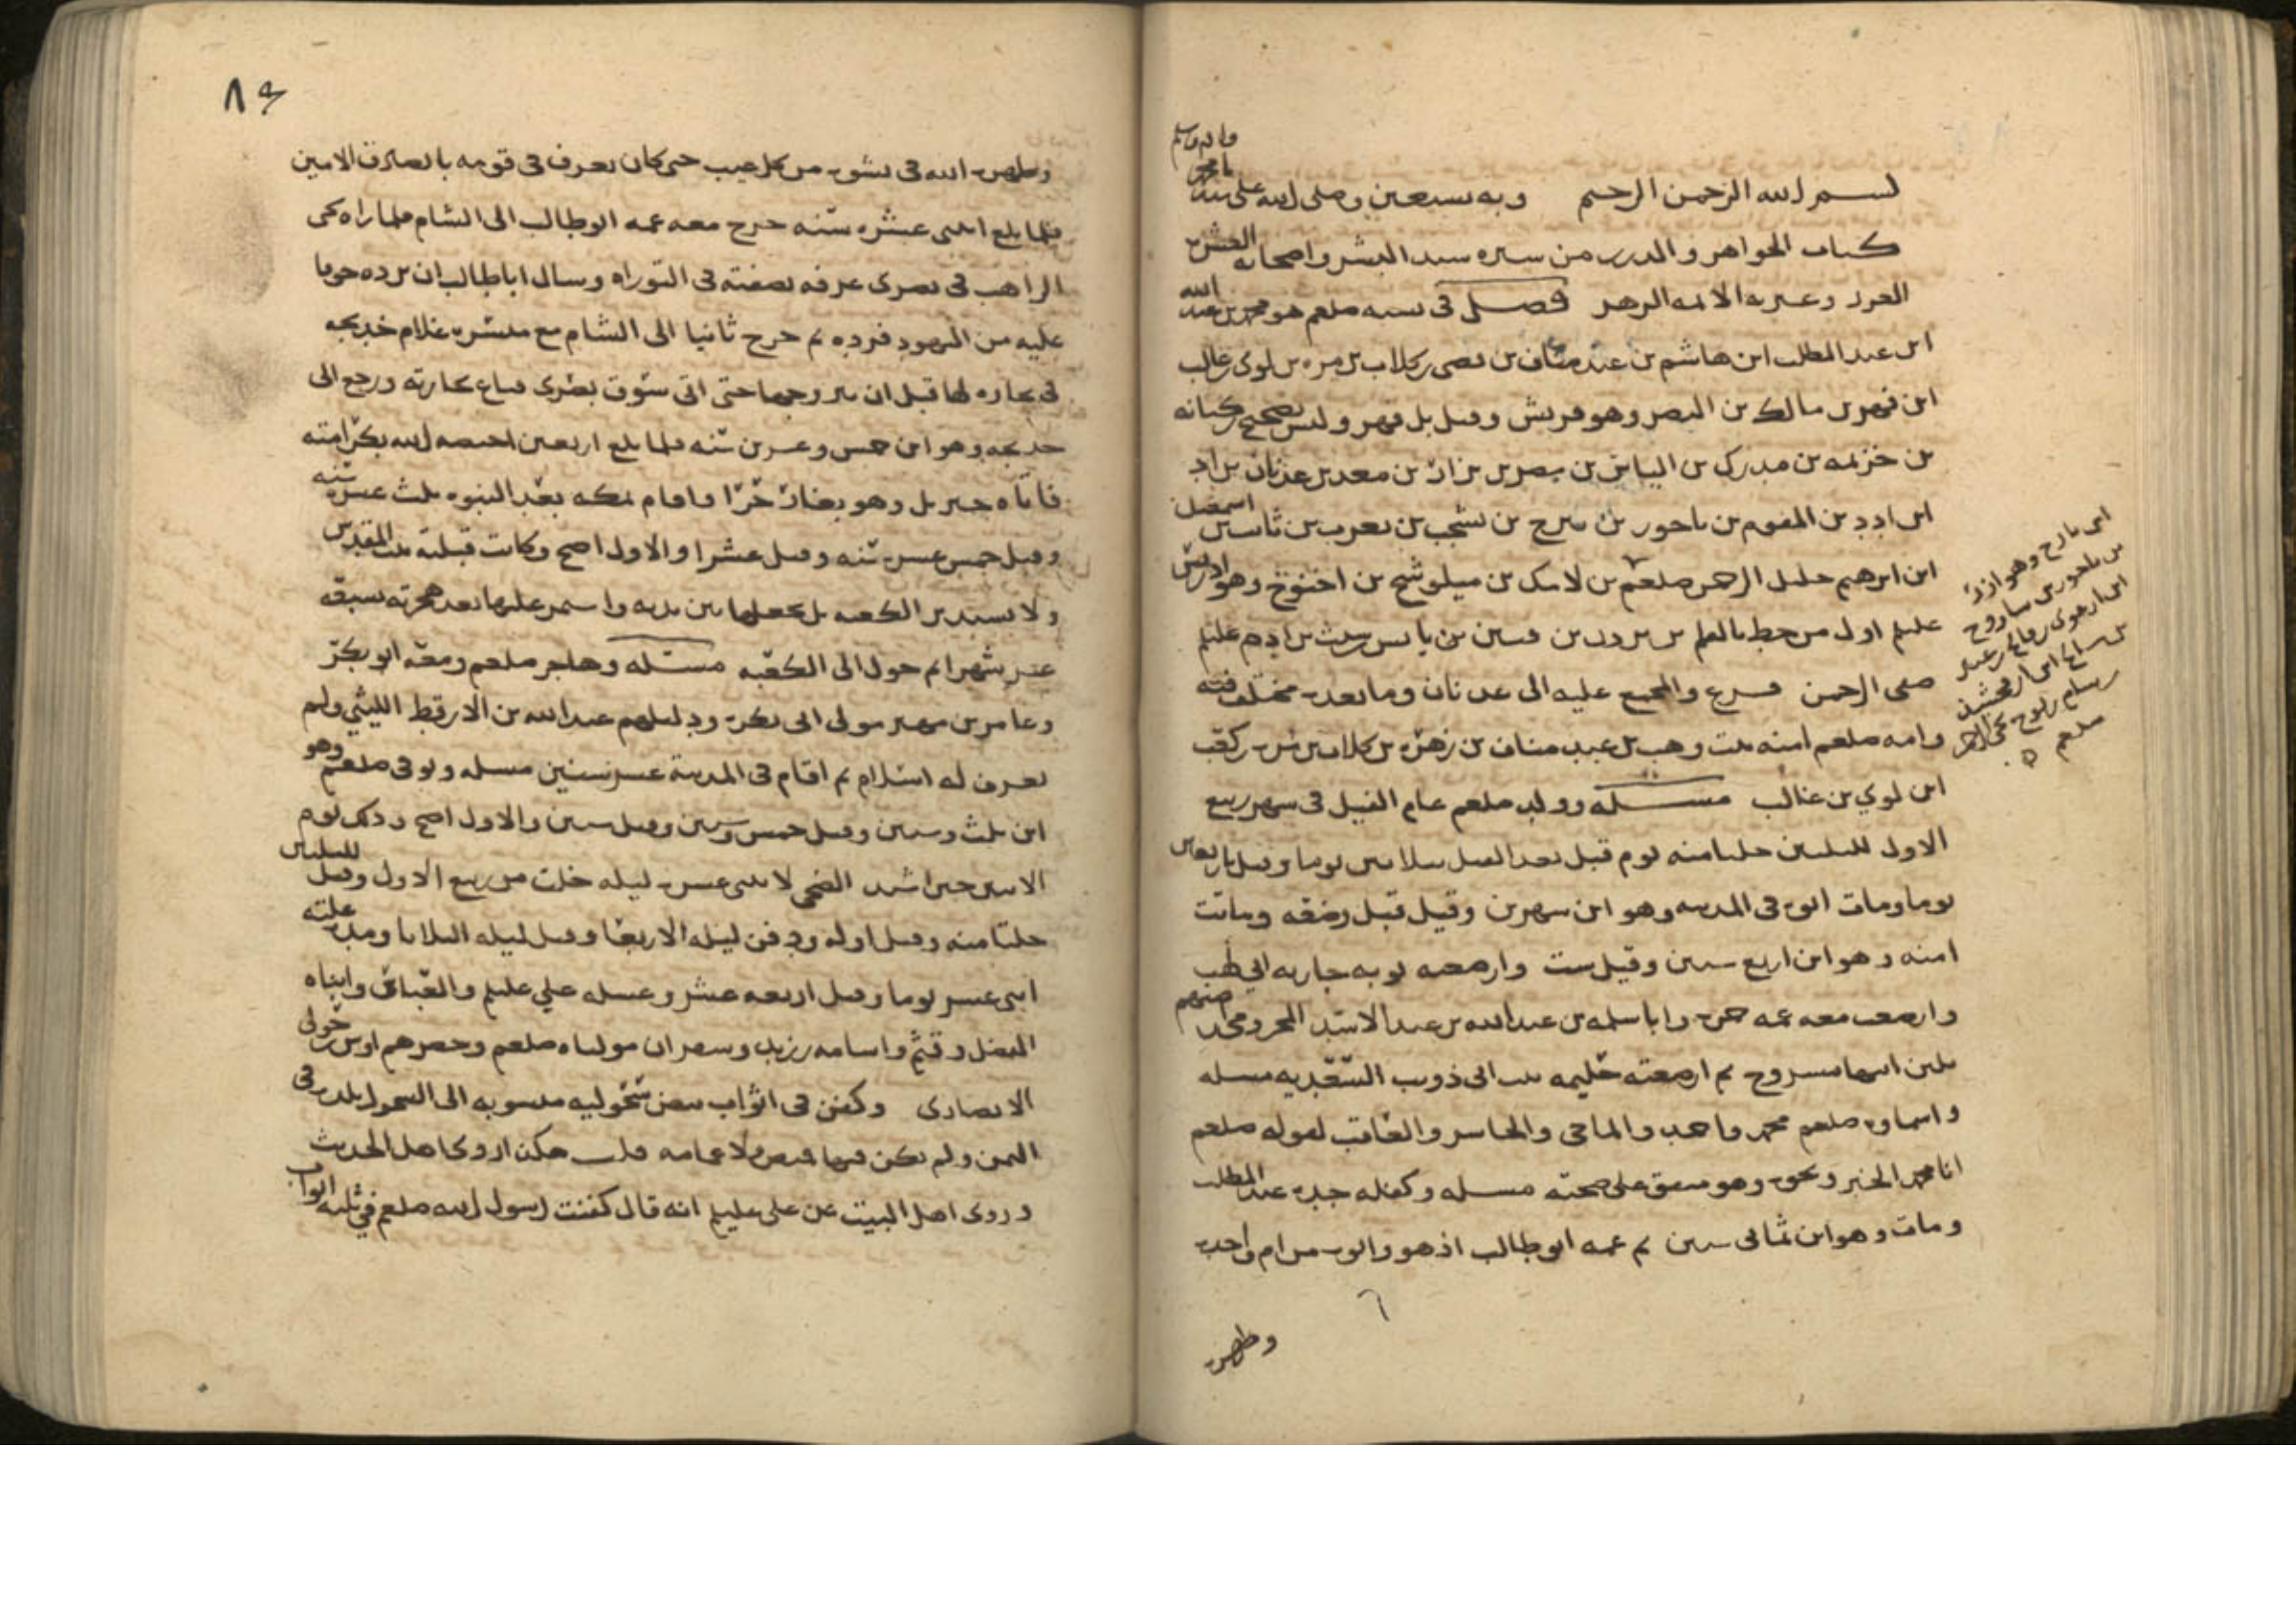 بسم الله الرحمن الرحيم وبه نستعين وصلى الله على سيدنا
كتاب الجواهر والدرر من سيره سيد البشر واصحابه العشره
الغرر وعترته الائمه الزهر فصل في نسبه صلعم هو محمد بن عبد الله
ابن عبد المطلب ابن هاشم بن عبد مناف بن قصي بن كلاب بن مره بن لوي بن غالب
ابن فهر بن مالك بن النضر وهو قريش وقيل بل فهر وليس بصحيح بن كنانه
بن خزيمه بن مدركه بن الياس بن مضر بن نزار بن معد بن عدنان بن اد
ابن ادد بن المقوم بن ناحور بن تيرح بن يشجب بن يعرب بن ثابت بن اسمعيل
ابن ابرهيم خليل الرحمن صلعم بن لامك بن ميلوشخ بن اخنوخ وهو ادريس
عليلم اول من خط بالقلم بن يرد بن قينن بن يانس بن شيث بن ادم عليلم
صفي الرحمن فرع والمجمع عليه الى عدنان وما بعده مختلف فيه
وامه صلعم امنه بنت وهب بن عبد مناف بن زهره بن كلاب بن مره بن كعب
ابن لوي بن غالب مسله وولد صلعم عام الفيل في شهر ربيع
الاول لليلتين خلتا منه يوم قبل بعد الفيل بثلاثين يوما وقيل باربعين
يوما ومات ابوه في المدينه وهو ابن شهرين وقيل قبل وضعه وماتت
امنه وهو ابن اربع سنين وقيل ست وارضعته ثويبه جاريه ابي لهب
وارضعت معه عمه حمزه وابا سلمه بن عبد الله بن عبد الاسد المخزومي
بلبن ابنها مسروح ثم ارضعته حليمه بنت ابي ذويب السعديه مسله
واسماوه صلعم محمد واحمد والماحي والحاشر والعاقب لقوله صلعم
انا محمد الخبر ونحوه وهو متفق على صحته مسله وكفله جده عبد المطلب
ومات وهو ابن ثماني سنين ثم عمه ابو طالب اذ هو وابوه من ام واحده
وطهره
ابن تارح وهو ازر
بن ناحور بن ساروح
ابن ارغوي
ابن ارفخشد
صلعم
٨٤
وطهره الله في نشوه من كل عيب حتى كان يعرف في قومه بالصادق الامين
فلما بلغ اثنتي عشره سنه خرج معه عمه ابو طالب الى الشام فلما راه بحيرا
الراهب في بصرى عرفه بصفته في التوراه وسال ابا طالب ان يرده خوفا
عليه من اليهود فرده ثم خرج ثانيا الى الشام مع ميسره غلام خديجه
في تجاره لها قبل ان يتزوجها حتى اتى سوق بصرى فباع تجارته ورجع الى
خديجه وهو ابن خمس وعشرين سنه فلما بلغ اربعين اختصه الله بكرامته
فاتاه جبريل وهو بغار حرا واقام بمكه بعد النبوه ثلث عشره سنه
وقيل خمس عشره سنه وقيل عشرا والاول اصح وكانت قبلته بيت المقدس
ولا يستدبر الكعبه بل يجعلها بين يديه واستمر عليها بعد هجرته سبعه
عشر شهرا ثم حول الى الكعبه مسئله وهاجر صلعم ومعه ابو بكر
وعامر بن فهيره مولى ابي بكر ودليلهم عبد الله بن الارقط الليثي ولم
يعرف له اسلام ثم اقام في المدينة عشر سنين مسله وتوفي صلعم وهو
ابن ثلث وستين وقيل خمس وستين وقيل ستين والاول اصح وذلك يوم
الاثنين حين اشتد الضحى لاثنتي عشره ليله خلت من ربيع الاول وقيل لليلتين
خلتا منه وقيل اوله ودفن ليله الاربعا وقيل ليله الثلاثا ومده علته
اثني عشر يوما وقيل اربعه عشر وغسله علي عليلم والعباس وابناه
الفضل وقثم واسامه بن زيد وشقران مولياه صلعم وحضرهم اوس بن خولي
الانصاري وكفن في اثواب بيض سحوليه منسوبه الى السحول بلد في
اليمن ولم يكن فيها قميص ولا عمامه قلت هكذا روى اهل الحديث
وروى اهل البيت عن علي عليلم انه قال كفنت رسول الله صلعم في ثلثه اثواب